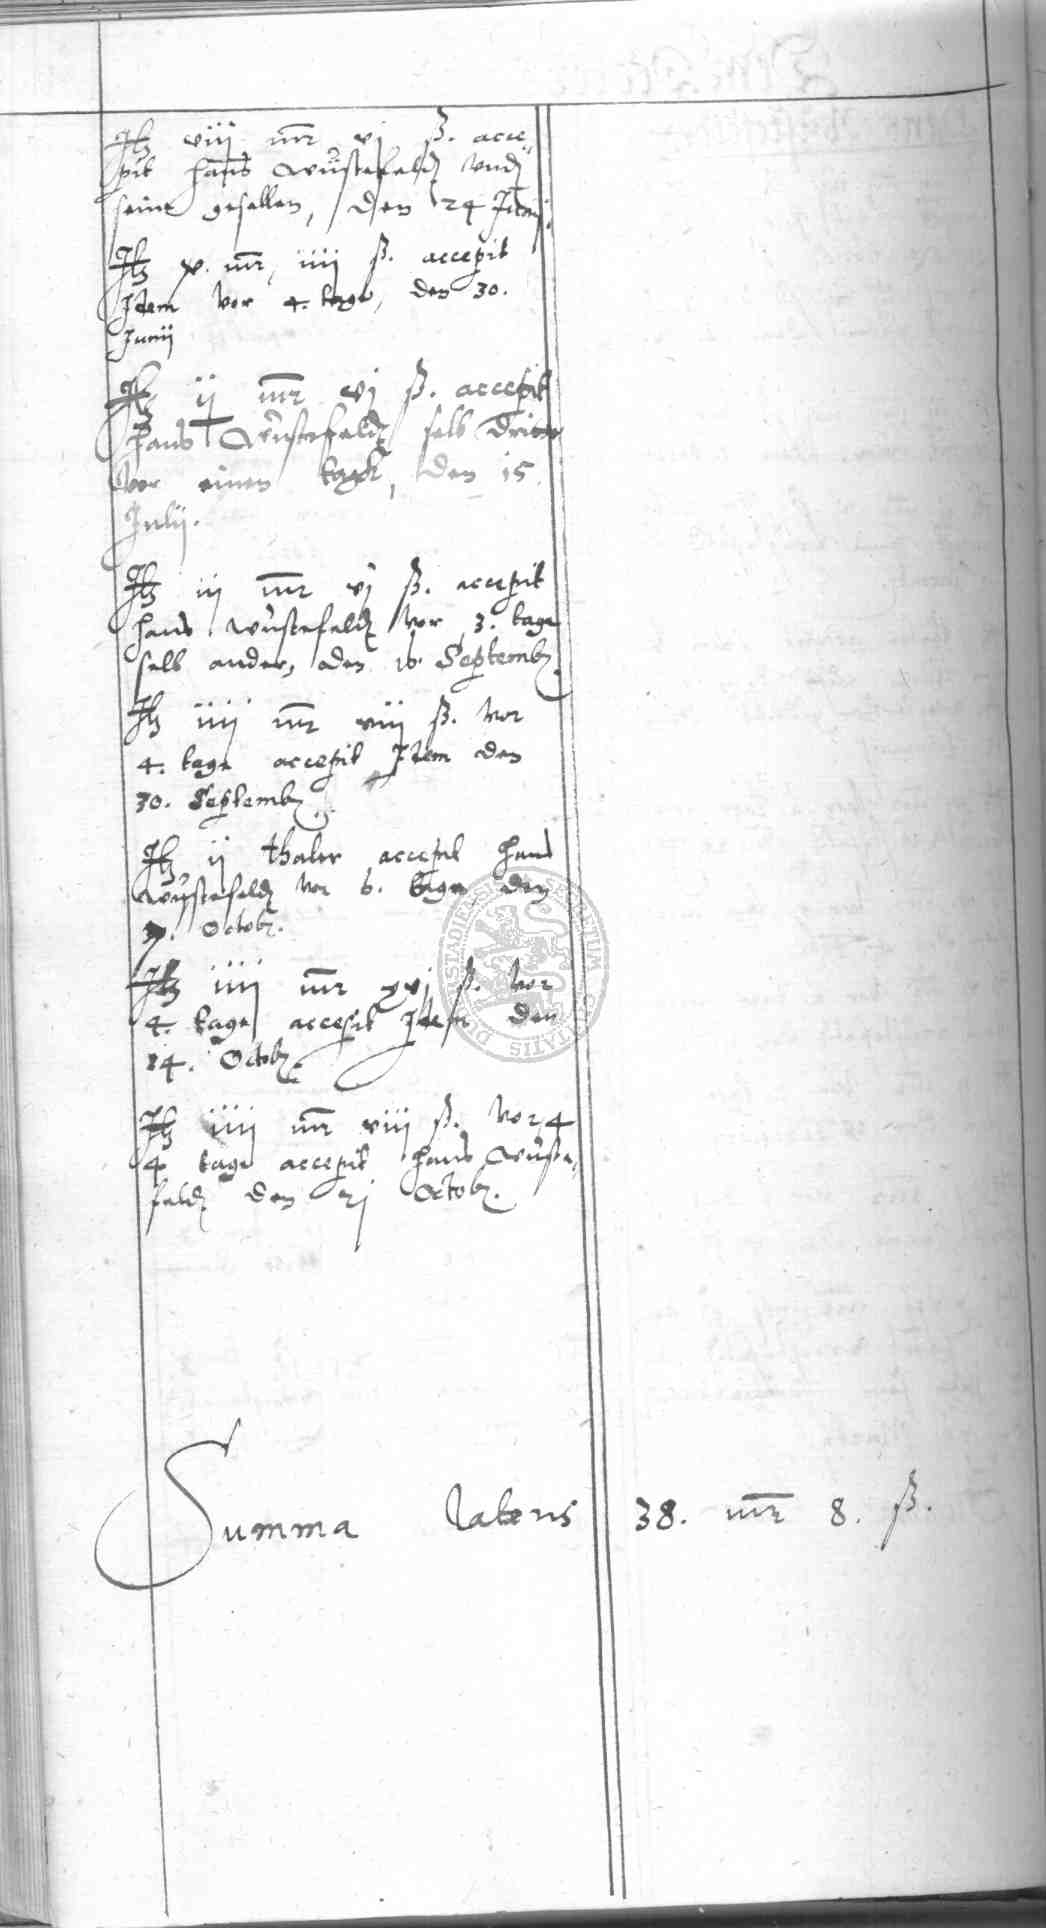 Itz viii mr vj ß. acce-
pit Hans Wüstefeldt vnd
seine gesellen, den 24 Junij.
Itz x. mr, iiii ß. accepit
Idem vor 4. tage, den 30.
Junij
Itz ij mr vj ß. accepit
Hans Wüstefeldt selb dritte
vor einen tagk, den 15.
Julij.
Itz iij mr vj ß. accepit
Hans Wüstefeldt vor 3. tage
selb ander, den 16. Septemb.
Itz iiij mr viij ß. vor
4. tage accepit Idem den
30. Septemb.
Itz ij thaler accepit Hans
Wüstefeldt vor 6. tage, den
Octob.
Itz iiij mr xvj ß. vor
4. tage accepit Idem den
14. Octob.
Itz iiij mr viij ß. vor 4
4 tage accepit Hans Wüste-
feldt den 21 Octob.
Summa lateris 38. mr 8. ß.
SECRETUM CIVITATIS